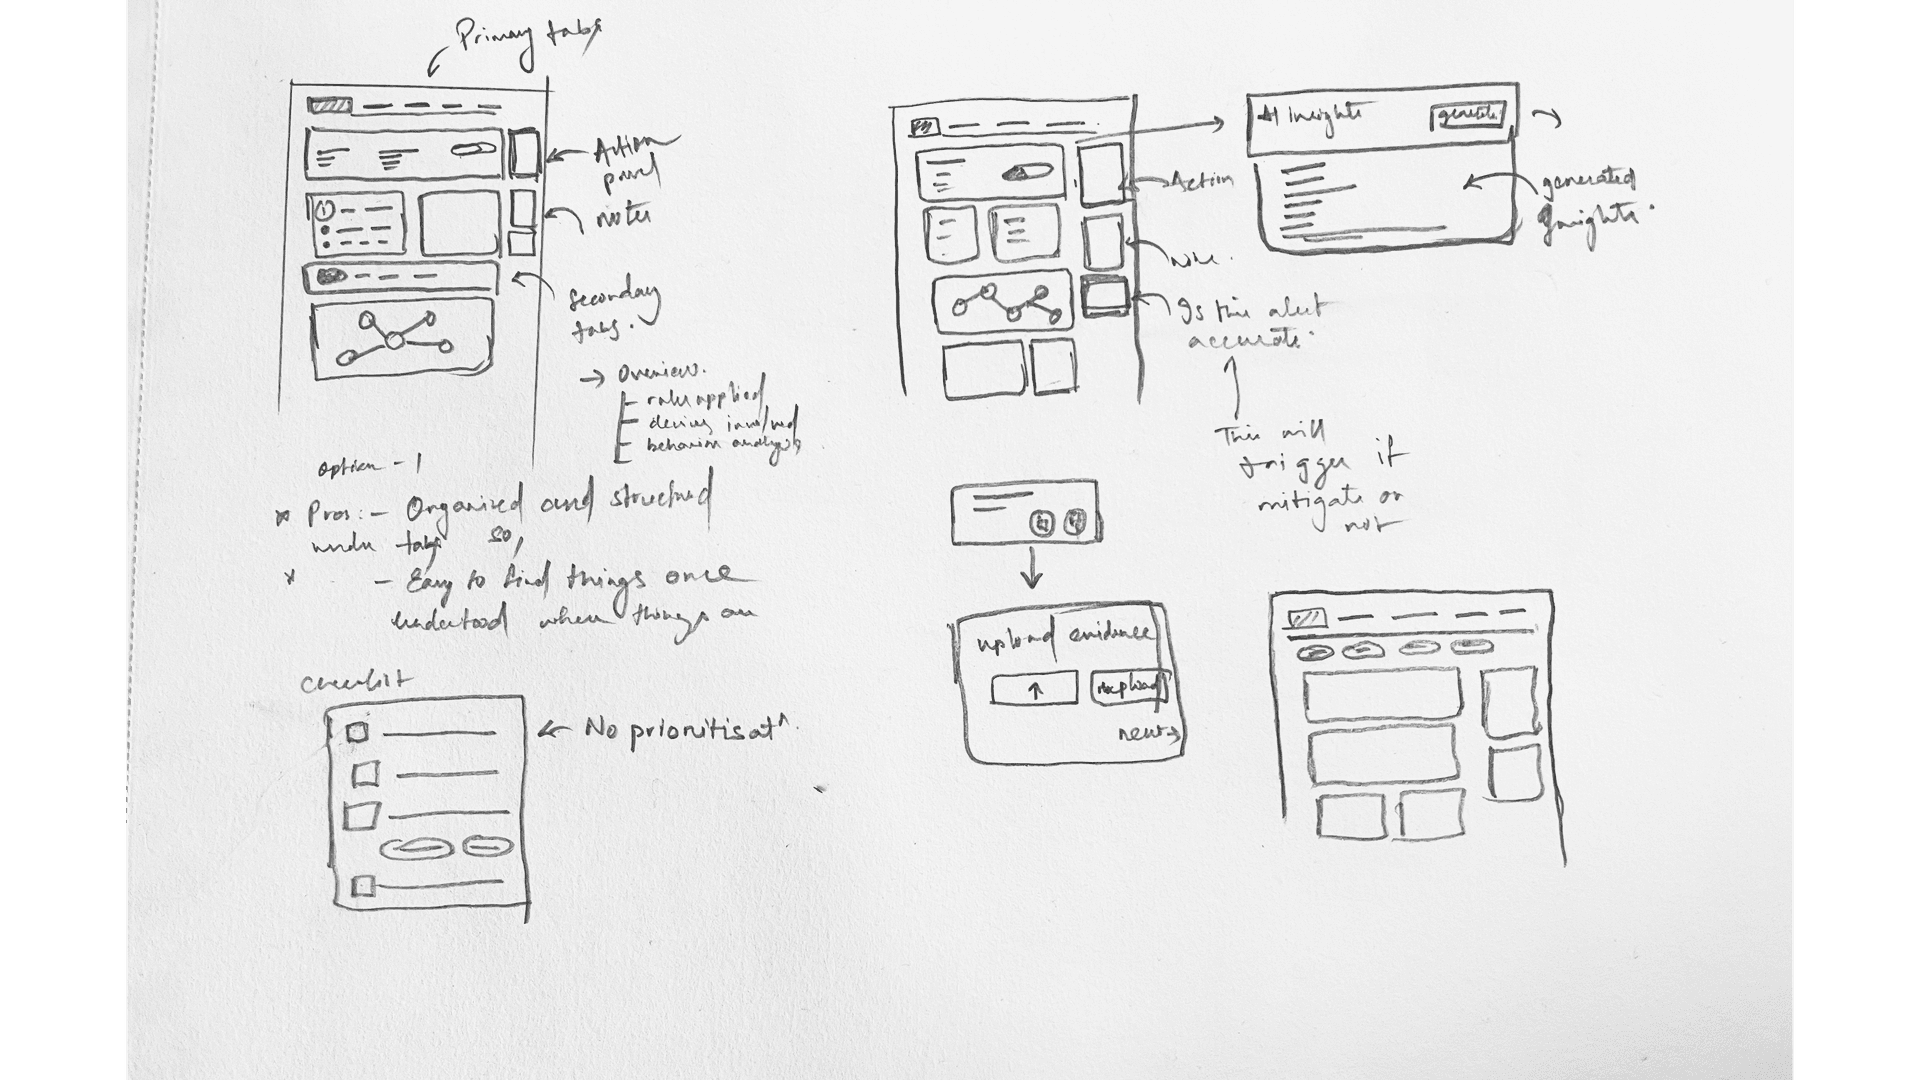 Primary tabs
Action
panel
notes
Secondary
tabs.
→ Overview.
- rules applied
- devices involved
- behavior analysis
option - 1
* Pros :- Organized and structured
under tabs so,
* - Easy to find things once
understood where things are
checklist
No prioritisatⁿ.
AI Insights
generate
generated
Insights.
Action
Note.
Is this alert
accurate.
This will
trigger if
mitigate or
not
upload evidence
↑
next→